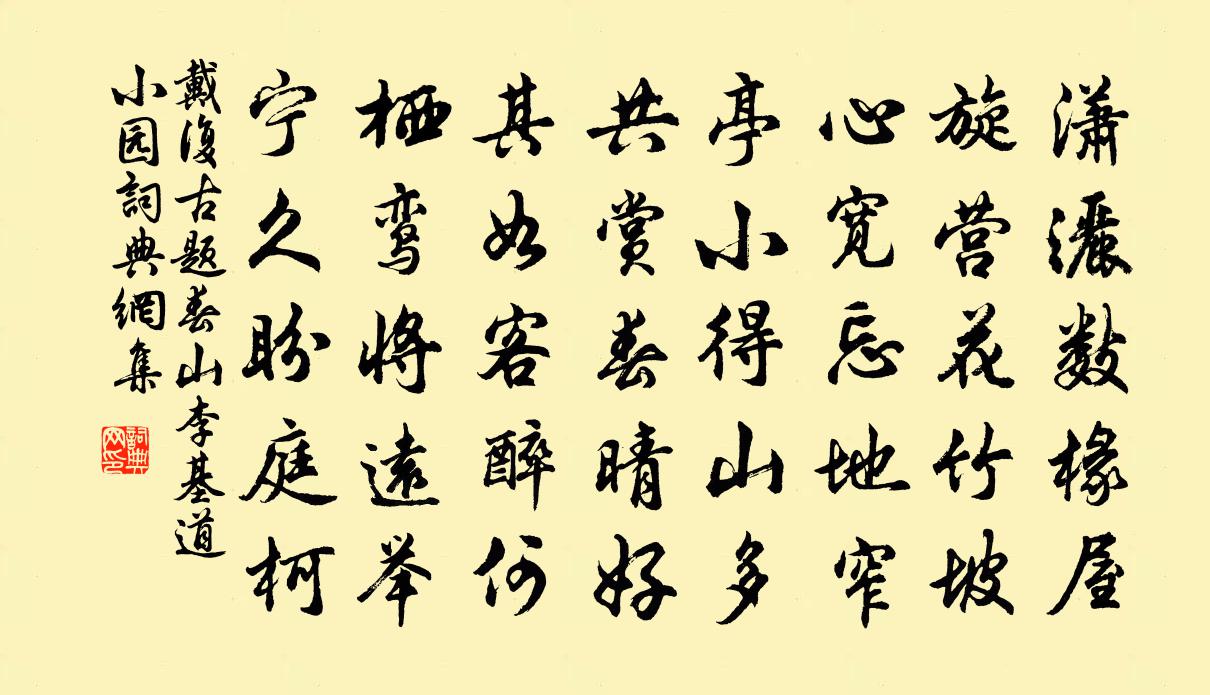 潇灑数椽屋
旋营花竹坡
心宽忘地窄
亭小得山多
共赏春晴好
其如客醉何
栖鸾将遠举
宁久盼庭柯
戴復古题春山李基道
小园詞典網集
詞典网印